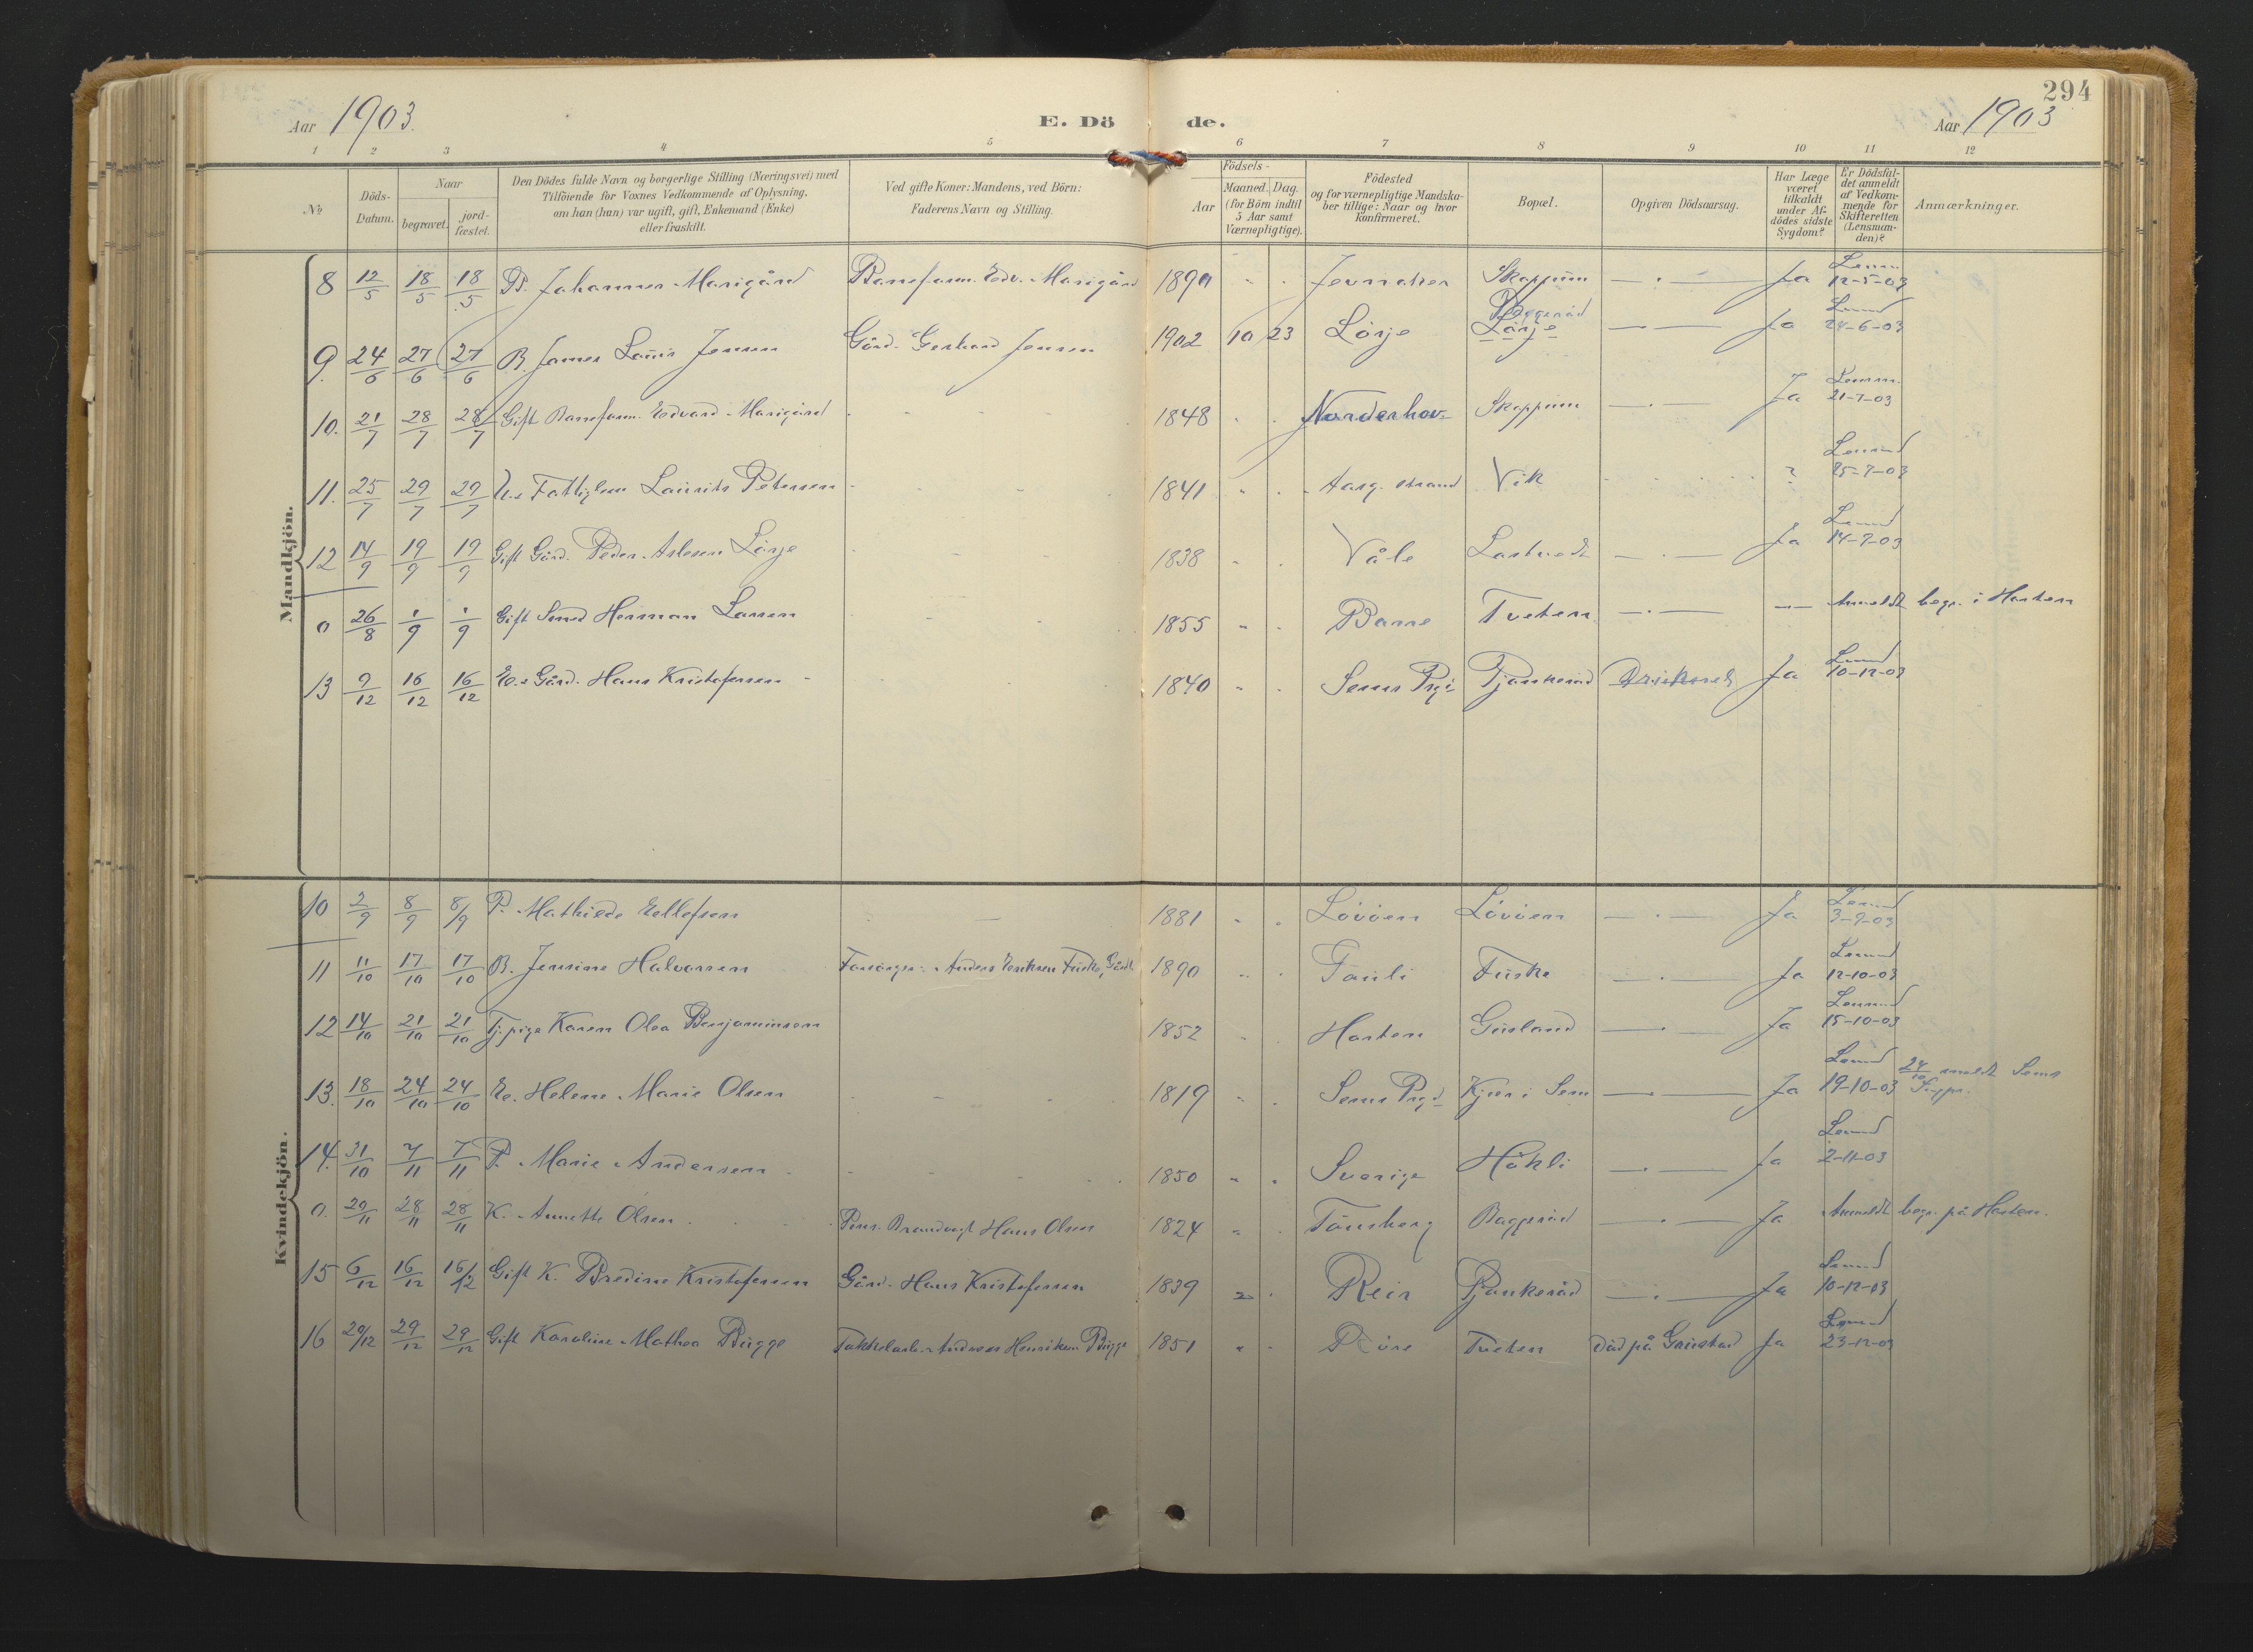 294
Aar 1903.
E. Dö de.
Aar 1903
1 2 3 4 5 6 7 8 9 10 11 12
No
Döds-
Datum.
Naar
begravet.
jord-
fæstet.
Den Dödes fulde Navn og borgerlige Stilling (Næringsvei) med
Tilföiende for Voxnes Vedkommende af Oplysning,
om han (hun) var ugift, gift, Enkemand (Enke)
eller fraskilt.
Ved gifte Koner: Mandens, ved Börn:
Faderens Navn og Stilling.
Födsels-
Aar
Maaned. Dag.
(for Börn indtil
5 Aar samt
Værnepligtige).
Födested
og for værnepligtige Mandska-
ber tillige: Naar og hvor
konfirmeret.
Bopæl.
Opgiven Dödsaarsag.
Har Læge
været
tilkaldt
under Af-
dödes sidste
Sygdom?
Er Dödsfal-
det anmeldt
af Vedkom-
mende for
Skifteretten
(Lensman-
den)?
Anmærkninger.
Mandkjön.
8 12/5 18/5 18/5 B. Johannes Marigård Baneform. Edv. Marigård 1890 " . Jevnaker Skoppum — . — Ja Lensm 12-5-03
Baggerød
9. 24/6 27/6 27/6 B. James Lauis Jensen Gård. Gerhard Jensen 1902 10 23 Lörje Lörje — . — Ja Lensmd 24-6-03
10. 21/7 28/7 28/7 Gift Baneform. Edvard Marigård 1848 " . Norderhov Skoppum — . — Ja Lensm. 21-7-03
11. 25/7 29/7 29/7 Fattiglem Laurits Petersen 1841 " . Aasg. strand Vik ? Lensmd 25-7-03
12 14/9 19/9 19/9 Gift Gård. Peder Aslesen Lörje 1838 " . Våle — . — Ja Lensmd 14-9-03
0 26/8 1/9 1/9 Gift Smed Herman Larsen 1855 " . Borre Tveten — . — — Anmeldt begr. i Horten
13 9/12 16/12 16/12 E. Gård. Hans Kristofersen 1840 " . Sems Prgj. Pjonkerød Ja Lensmd 10-12-03
Kvindekjön.
10 2/9 8/9 8/9 P. Mathilde Ellefsen — 1881 " . Lövöen Lövöen — . — Ja Lensmd 3-9-03
11 11/10 17/10 17/10 B. Jensine Halvorsen Forsörger: Anders Eriksen Fuske, Gårdb. 1890 " . Fuske — . — Ja Lensmd 12-10-03
12 14/10 21/10 21/10 Tj.pige Karen Olea Benjaminsen 1852 " . Horten Gusland — . — Ja Lensmd 15-10-03
13. 18/10 24/10 24/10 E. Helene Marie Olsen 1819 " . Sems Prgj. Kjær i Sem — . — Ja Lensmd 19-10-03 24/10 meldt Sems Sogpr.
14. 31/10 7/11 7/11 P. Marie Andersen 1850 " . Sverige Håkli — . — Ja Lensmd 2-11-03
0. 20/11 28/11 28/11 K. Annette Olsen Pens. Brandvagt Hans Olsen 1824 " . Tönsberg Baggerød — . — Ja Anmeldt begr. på Horten.
15 6/12 16/12 16/12 Gift K. Bredine Kristofersen Gård. Hans Kristofersen 1839 " . Pjonkerød — . — Ja Lensmd 10-12-03
16 20/12 29/12 29/12 Gift Karoline Mathea Bugge Andreas Henriksen Bugge 1851 " . Tveten Död på Grústad Ja Lensmd 23-12-03